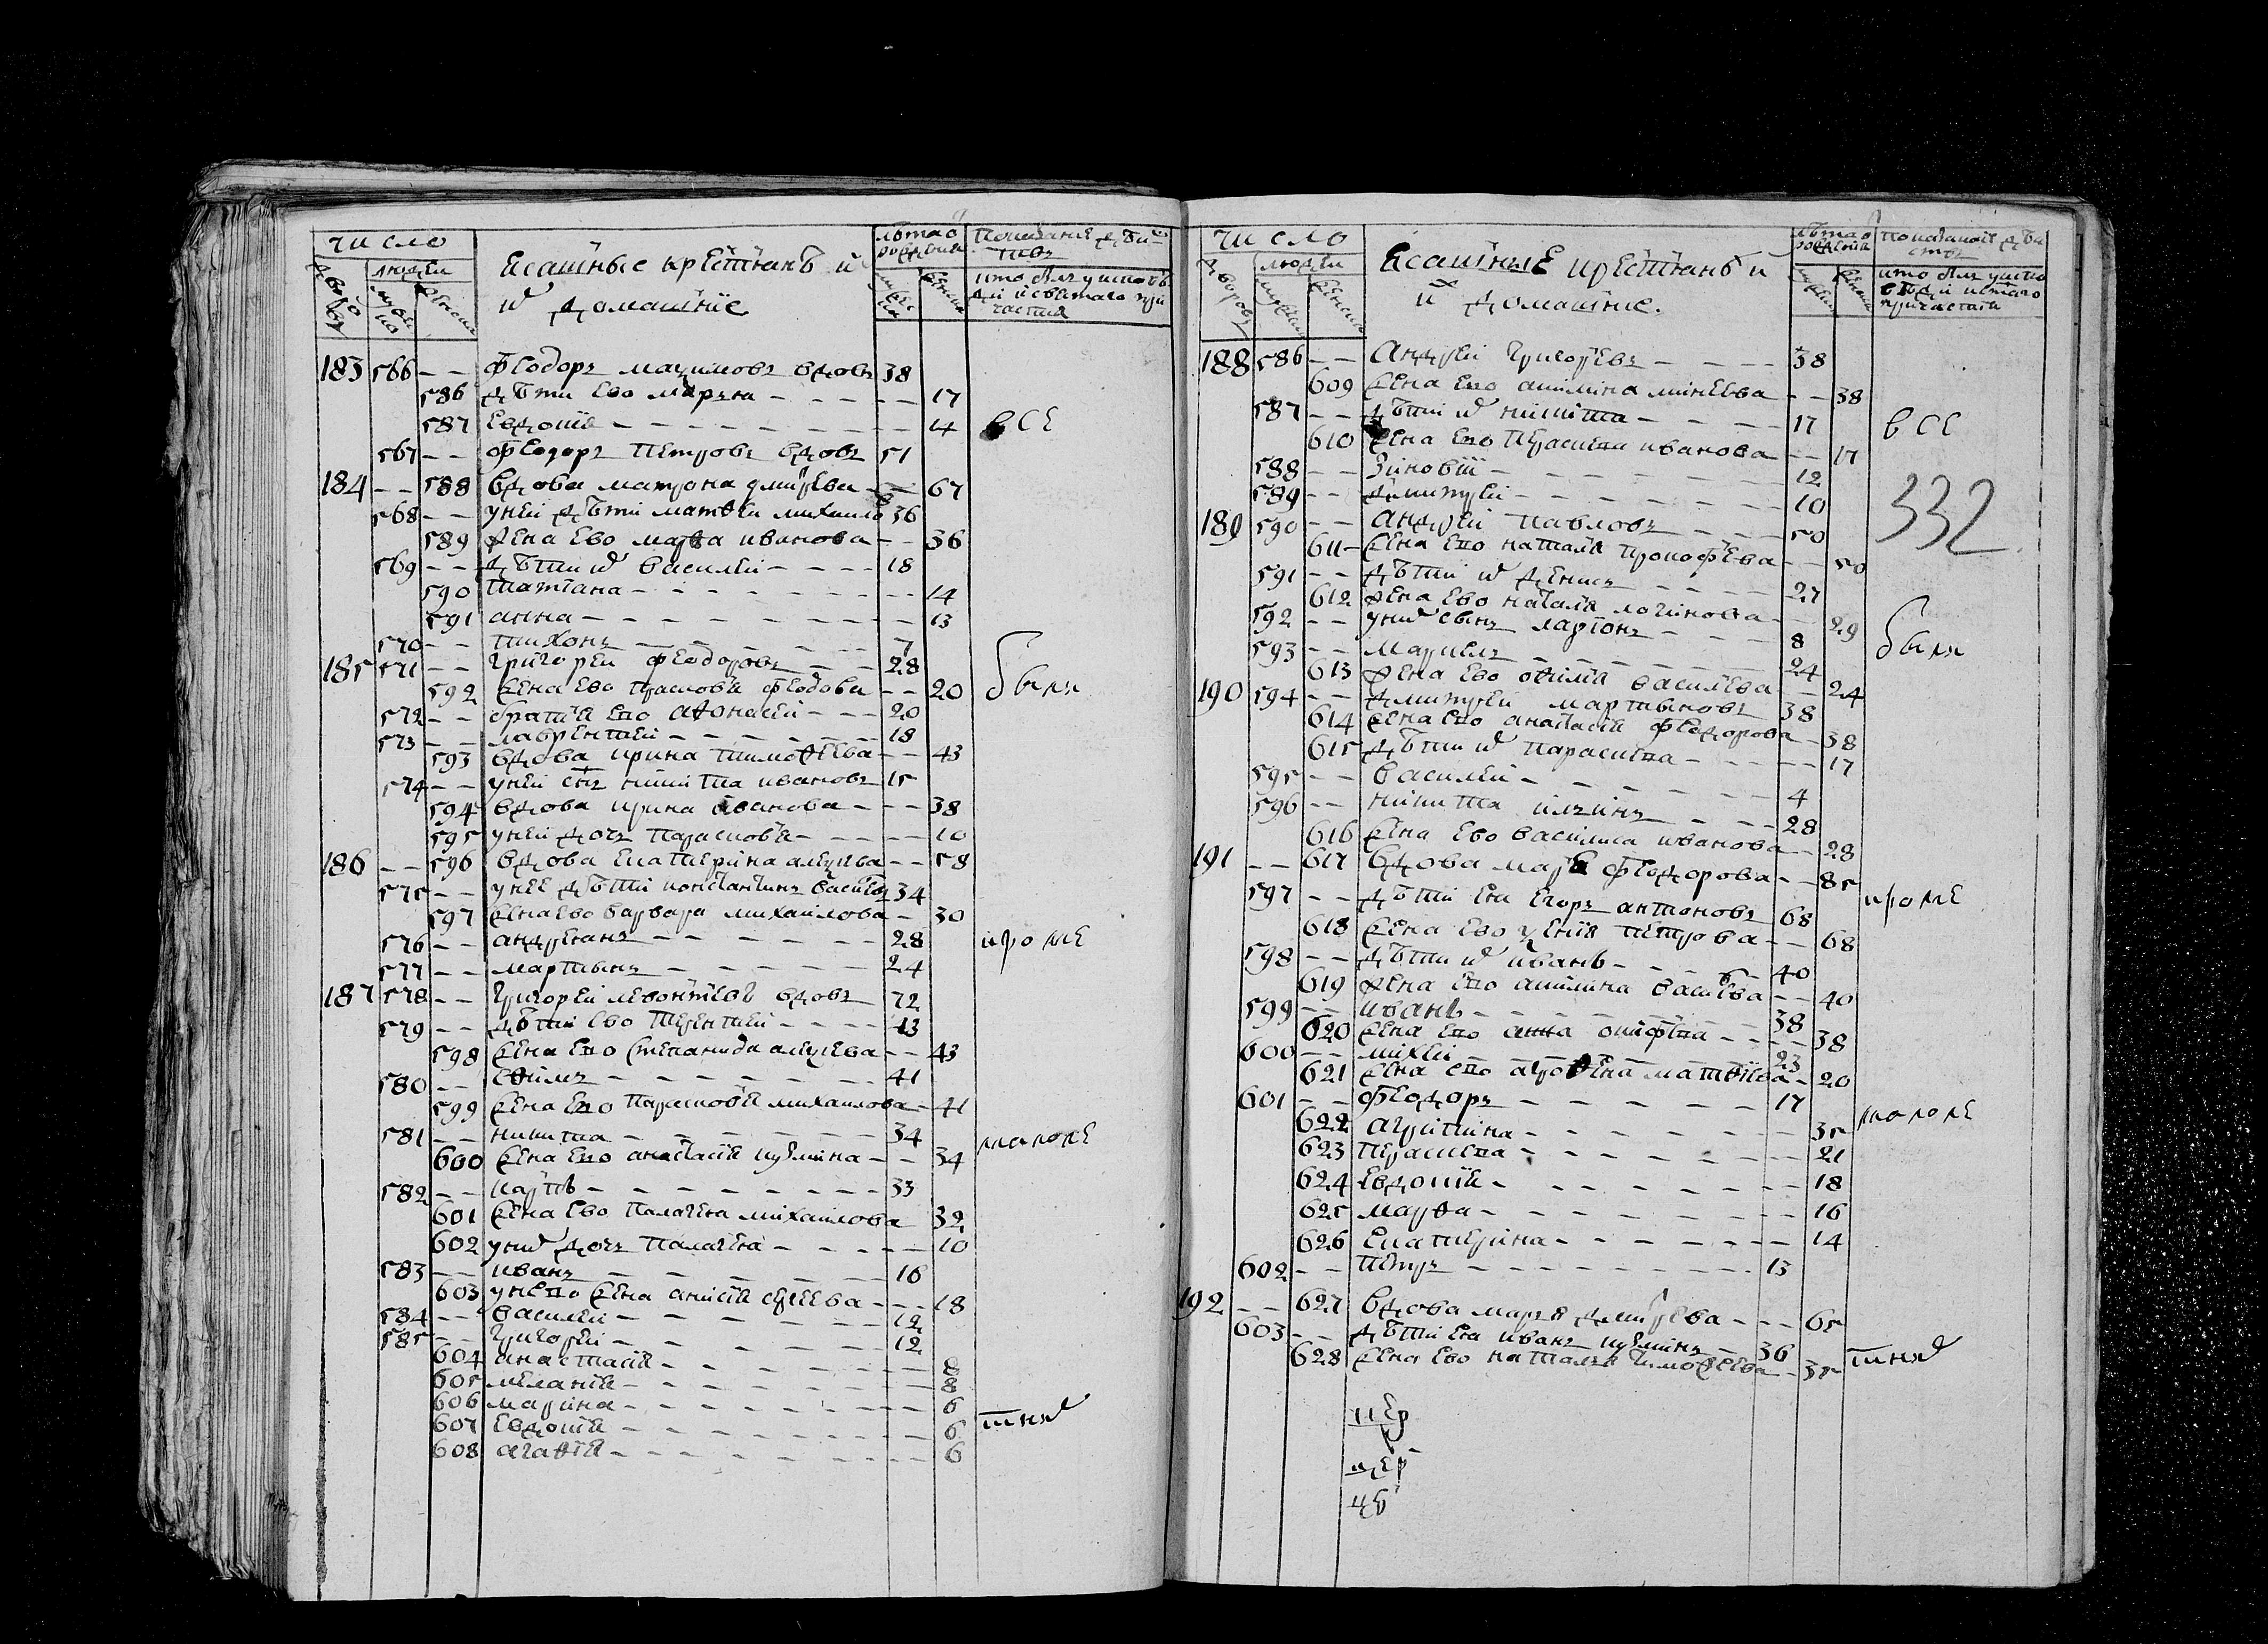 число
людеи
Ясашные крестьянъ и
и домашние
лѣта о рождения
Показание дѣиствъ
кто былъ у исповѣ
ди и святаго при
частия
183 566 -- Феодоръ Мазимовъ вдовъ 38
586 дѣти ево Марья ---- 17
587 Евдокия ---- 14 все
567 -- Федоръ Петровъ вдовъ 51
184 -- 588 вдова Матрона Дмитрева -- 67
568 -- у неи дѣти Матвеи Михаило 36
589 жена ево Марѳа Иванова -- 36
569 -- дѣти их Василеи ---- 18
590 Татиана ---- 14
591 Анна ---- 13
570 -- Тихонъ ---- 7
185 571 -- Григореи Феодоровъ -- 28
592 жена ево Прасковья Федова -- 20 были
572 -- братья ево Аѳонасеи --- 20
573 -- Лаврентеи ---- 18
593 вдова Ирина Тимоѳеева -- 43
574 -- у неи снъ Никита Ивановъ 15
594 вдова Ирина Иванова --- 38
595 у неи дочь Парасковья ---- 10
186 -- 596 вдова Екатерина Алеѯева -- 58
575 -- у нее дѣти Константинъ Василев 34
597 жена ево Варвара Михаилова - 30
576 -- Андреанъ ---- 28 кроме
577 -- Мартынъ ---- 24
187 578 -- Григореи Левонтиевъ вдовъ 72
579 -- дѣти ево Терентеи ---- 43
598 жена ево Степанида Алеѯева -- 43
580 -- Еѳимъ ---- 41
599 жена ево Парасковья Михаилова - 41
581 -- Никита ---- 34 малоле
600 жена ево Анастасия Кузмина -- 34
582 -- Карпъ ---- 33
601 жена ево Палагея Михаилова 32
602 у них дочь Палагея ---- 10
583 -- Иванъ ---- 16
603 у нево жена Анисия Сергеева --- 18
584 -- Василеи ---- 12
585 -- Григореи ---- 12
604 Анастасия ---- 8
605 Мелания ---- 8
606 Марина ---- 6
607 Евдокия ---- 6 тних
608 Агаѳия ---- 6
число
дворовъ
людеи
Ясашные крестьянъ и
и домашние.
лѣта о рождения
Показание дѣи
ствъ
кто былъ у испо
вѣди и стаго
причастия
188 586 -- Андреи Григоревъ ---- 38
609 жена ево Акилина Минеева -- 38
587 -- дѣти их Никита ---- 17 все
610 жена ево Праскева Иванова -- 17
588 -- Зиновии ---- 12
589 -- Дмитреи ---- 10
332
189 590 -- Андреи Павловъ ---- 50
611 - жена ево Наталя Прокофева -- 50
591 -- дѣти их Денисъ ---- 27
612 жена ево Наталя Логинова -- 29
592 -- у них сынъ Ларионъ --- 8 были
593 -- Маркелъ ---- 24
613 жена ево Овимия Василева -- 24
190 594 -- Дмитреи Мартыновъ 38
614 жена ево Анастасия Федорова -- 38
615 дѣти их Параскева ---- 17
595 -- Василеи ---- 4
596 -- Никита Ильинъ --- 28
616 жена ево Василиса Иванова -- 28
191 -- 617 вдова Марья Федорова -- 85
597 -- дѣти ея Егоръ Антоновъ 68 кроме
618 жена ево Ѯения Петрова -- 68
598 -- дѣти их Иванъ ---- 40
619 жена ево Акилина Васи ева -- 40
599 -- Иванъ ---- 38
620 жена ево Анна Осифова ---- 38
600 -- Михеи ---- 23
621 жена ево Агроѳена Матвиева - 20
601 -- Феодоръ ---- 17 малоле
622 Агрипина ---- 35
623 Праскева ---- 21
624 Евдокия ---- 18
625 Марѳа ---- 16
626 Екатерина ---- 14
602 -- Петръ ---- 13
192 -- 627 вдова Марья Дмитрева --- 65
603 -- дѣти ея Иванъ Кузминъ - 36 тних
628 жена ево Наталья Тимоѳеева - 35